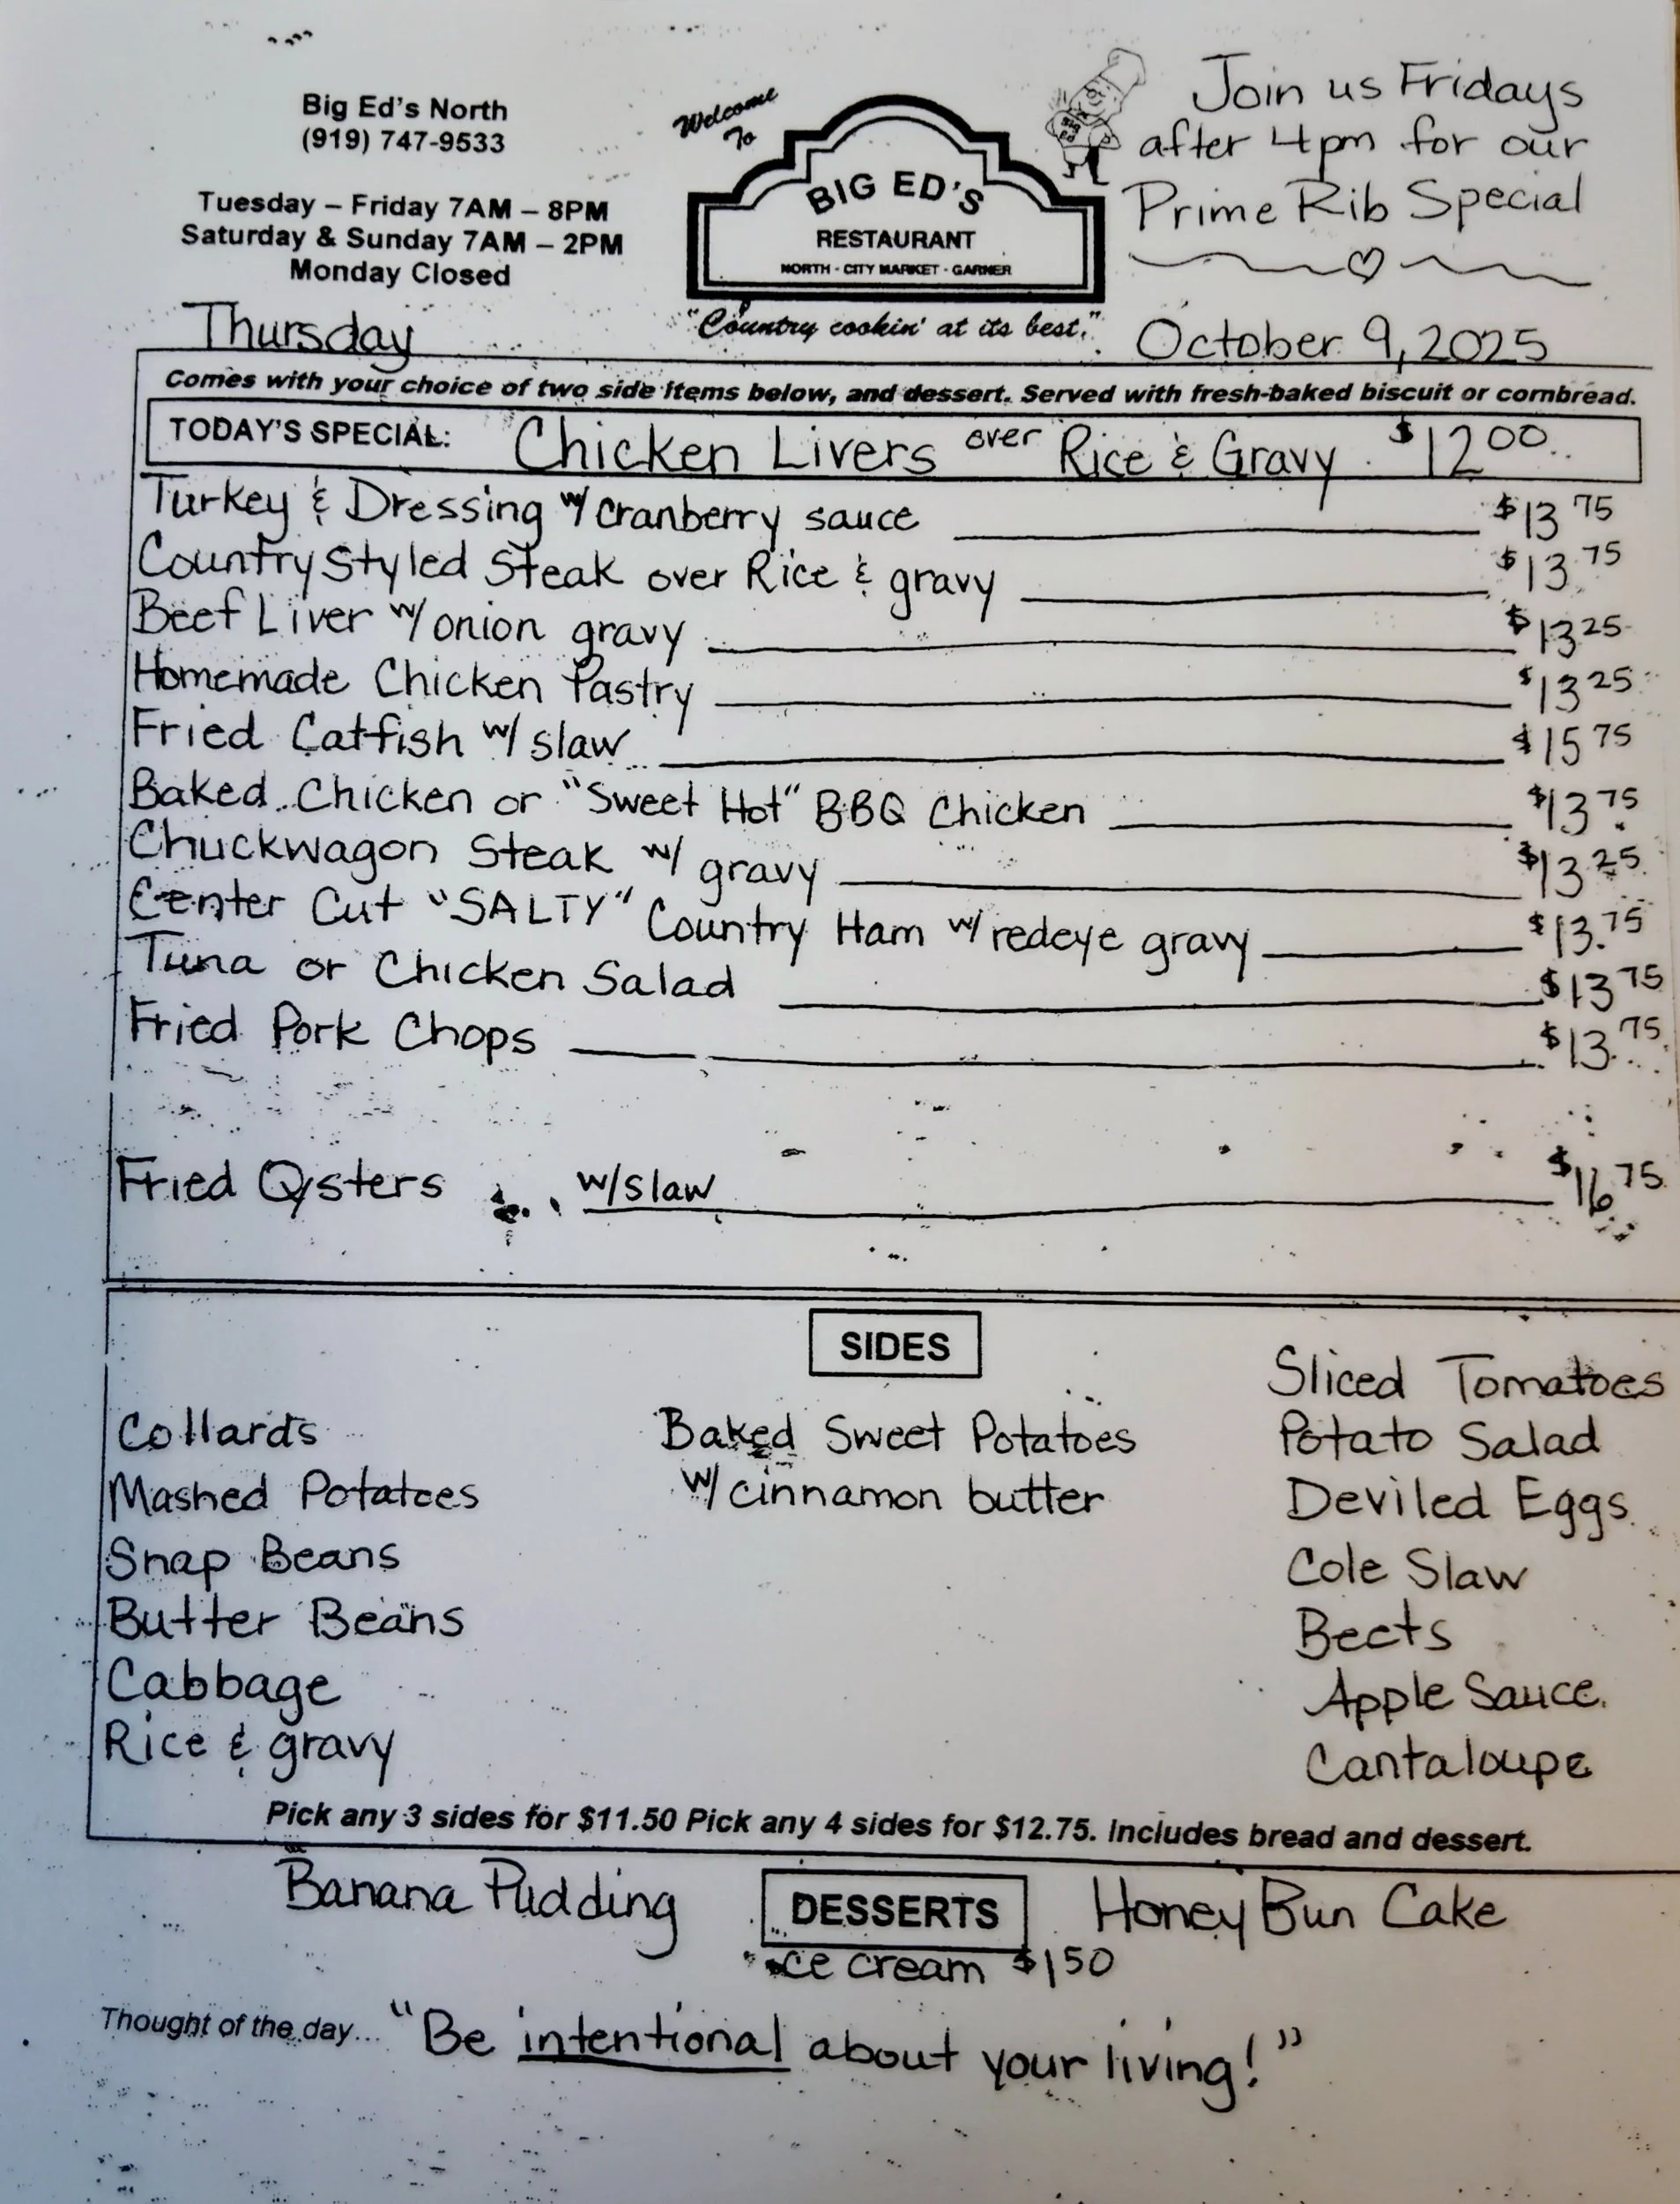 Big Ed's North
(919) 747-9533
Tuesday – Friday 7AM – 8PM
Saturday & Sunday 7AM – 2PM
Monday Closed
Welcome
To
BIG ED'S
RESTAURANT
NORTH - CITY MARKET - GARNER
"Country cookin' at its best."
BIG
ED
Join us Fridays
after 4pm for our
Prime Rib Special
Thursday
October 9, 2025
Comes with your choice of two side items below, and dessert. Served with fresh-baked biscuit or cornbread.
TODAY'S SPECIAL: Chicken Livers over Rice & Gravy $12 00
Turkey & Dressing w/ cranberry sauce $13 75
Country Styled Steak over Rice & gravy $13.75
Beef Liver w/ onion gravy $13 25
Homemade Chicken Pastry $13 25
Fried Catfish w/ slaw $15 75
Baked Chicken or "Sweet Hot" BBQ Chicken $13 75
Chuckwagon Steak w/ gravy $13 25
Center Cut "SALTY" Country Ham w/ redeye gravy $13.75
Tuna or Chicken Salad $13 75
Fried Pork Chops $13.75
Fried Oysters w/slaw $16 75
SIDES
Collards
Mashed Potatoes
Snap Beans
Butter Beans
Cabbage
Rice & gravy
Baked Sweet Potatoes
w/ cinnamon butter
Sliced Tomatoes
Potato Salad
Deviled Eggs
Cole Slaw
Beets
Apple Sauce
Cantaloupe
Pick any 3 sides for $11.50 Pick any 4 sides for $12.75. Includes bread and dessert.
Banana Pudding
DESSERTS
Honey Bun Cake
Ice cream $1 50
Thought of the day... "Be intentional about your living!"